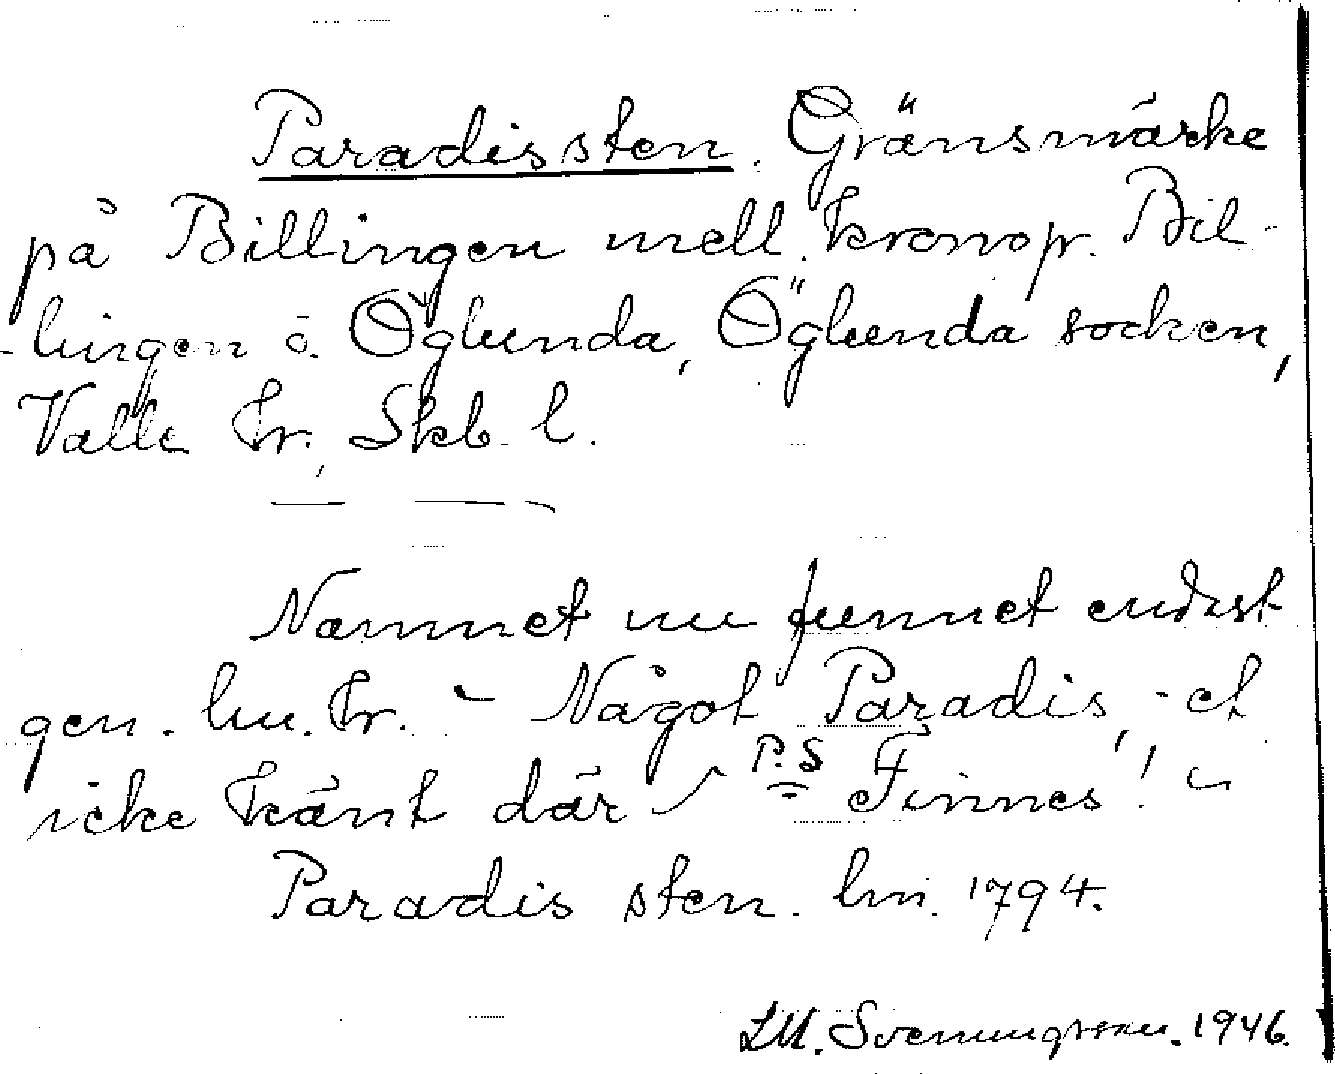 Paradissten. Gränsmärke
på Billingen mell. kronop. Bil-
-lingen o. Öglunda, Öglunda socken,
Valle hr., Skb. l.
Namnet nu funnet endast
gen. lm. hr. – Något Paradis, -et
icke känt där P.S Finnes!
Paradis sten. lm. 1794.
LM. Svenungsson. 1946.